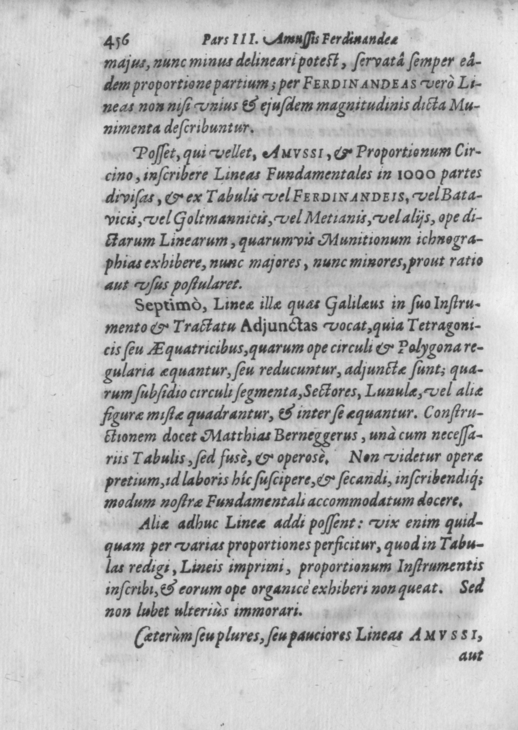 456 Pars III. Amussis Ferdinandeæ
majus, nunc minus delineari potest, servatâ semper eâ-
dem proportione partium; per FERDINANDEAS verò Li-
neas non nisi vnius & ejusdem magnitudinis dicta Mu-
nimenta describuntur.
Posset, qui vellet, AMVSSI, & Proportionum Cir-
cino, inscribere Lineas Fundamentales in 1000 partes
divisas, & ex Tabulis vel FERDINANDEIS, vel Bata-
vicis, vel Goltmannicis, vel Metianis, vel alijs, ope di-
ctarum Linearum, quarumvis Munitionum ichnogra-
phias exhibere, nunc majores, nunc minores, prout ratio
aut vsus postularet.
Septimò, Lineæ illæ quas Galilæus in suo Instru-
mento & Tractatu Adjunctas vocat, quia Tetragoni-
cis seu Æquatricibus, quarum ope circuli & Polygona re-
gularia æquantur, seu reducuntur, adjunctæ sunt; qua-
rum subsidio circuli segmenta, Sectores, Lunulæ, vel aliæ
figuræ mistæ quadrantur, & inter se æquantur. Constru-
ctionem docet Matthias Berneggerus, unà cum necessa-
riis Tabulis, sed fusè, & operosè. Non videtur operæ
pretium, id laboris hîc suscipere, & secandi, inscribendiq;
modum nostræ Fundamentali accommodatum docere.
Aliæ adhuc Lineæ addi possent: vix enim quid-
quam per varias proportiones perficitur, quod in Tabu-
las redigi, Lineis imprimi, proportionum Instrumentis
inscribi, & eorum ope organicè exhiberi non queat. Sed
non lubet ulteriùs immorari.
Cæterùm seu plures, seu pauciores Lineas AMVSSI,
aut